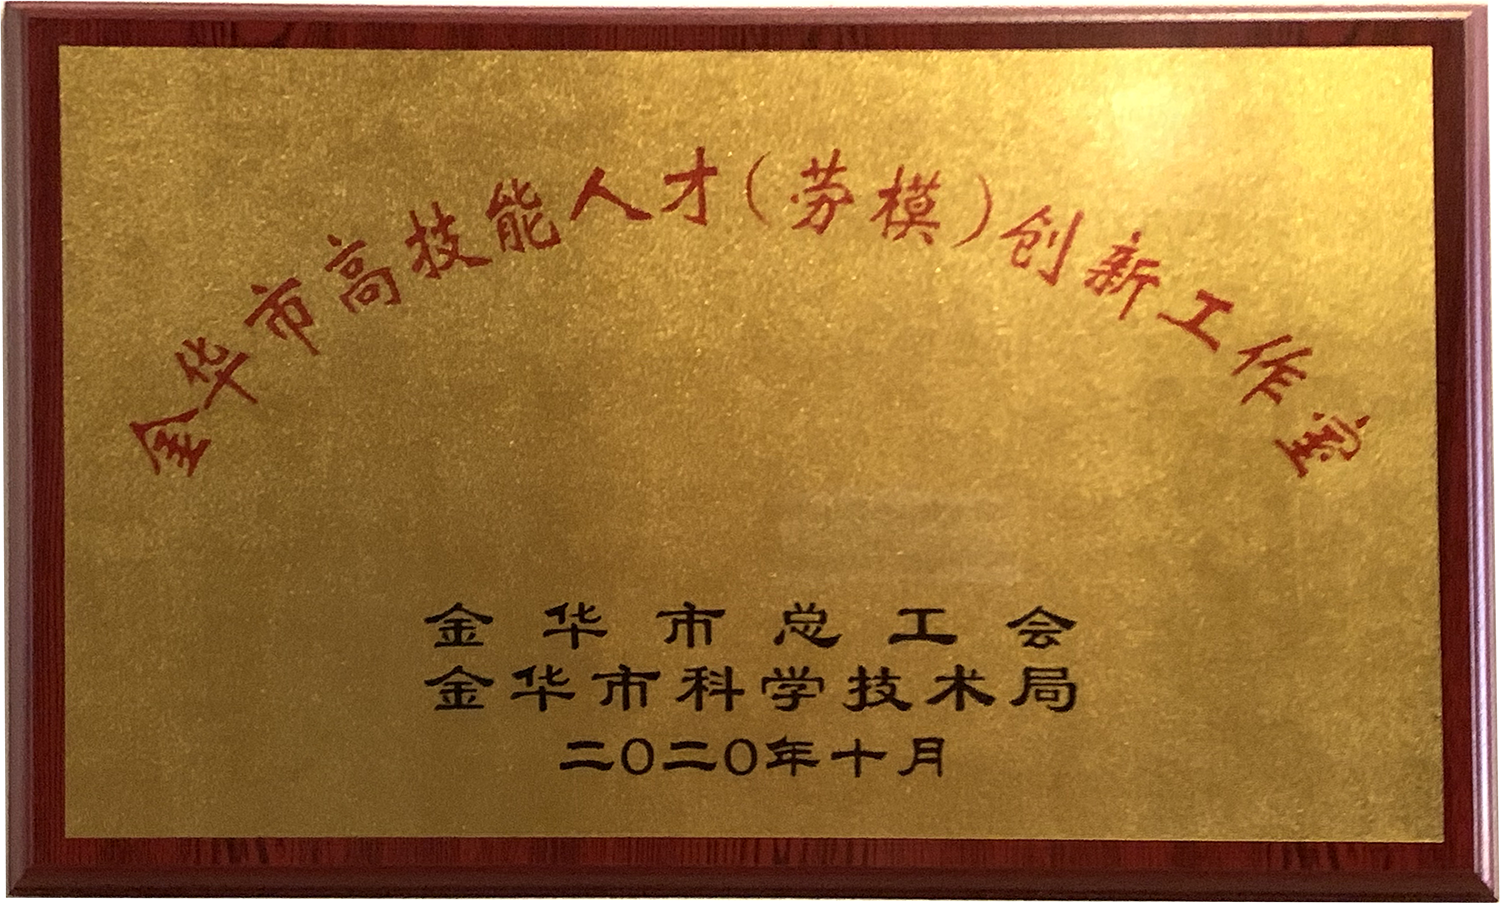 金华市高技能人才(劳模)创新工作室
金华市总工会
金华市科学技术局
二〇二〇年十月